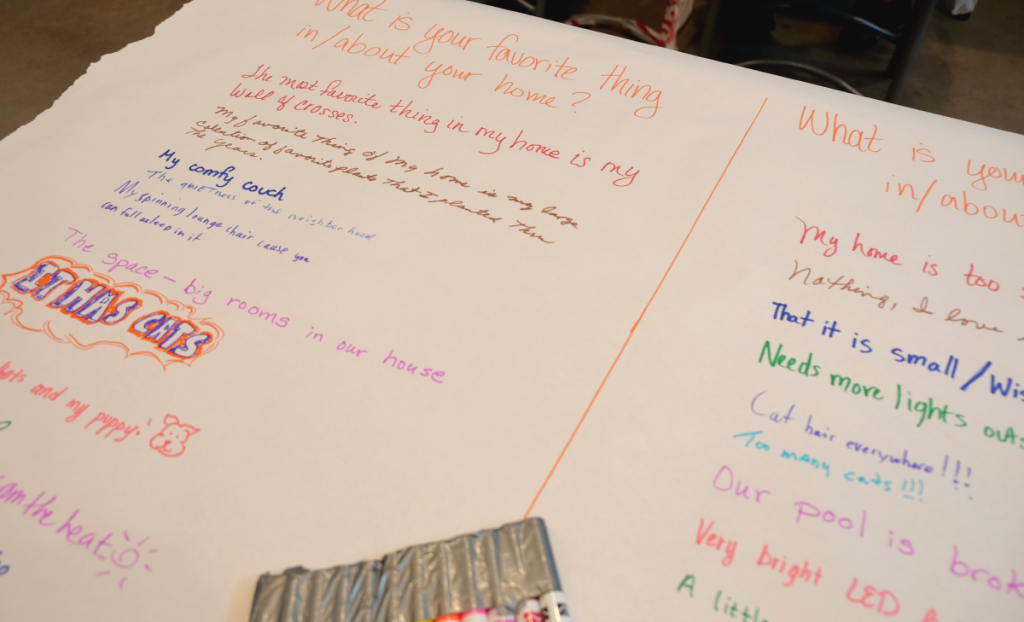 What is your favorite thing
in/about your home?
The most favorite thing in my home is my
Wall of crosses.
My favorite thing of my home is my large
collection of favorite plants that I planted Thru
The years.
My comfy couch
The quietness of the neighborhood
My spinning lounge chair cause you
can fall asleep in it
The space — big rooms in our house
IT HAS CATS
and my puppy!
am the heat
What is
in/about
My home is too
Nothing, I love
That it is small/
Needs more lights
Cat hair everywhere!!!
Too many cats!!!
Our pool is
Very bright LED
A